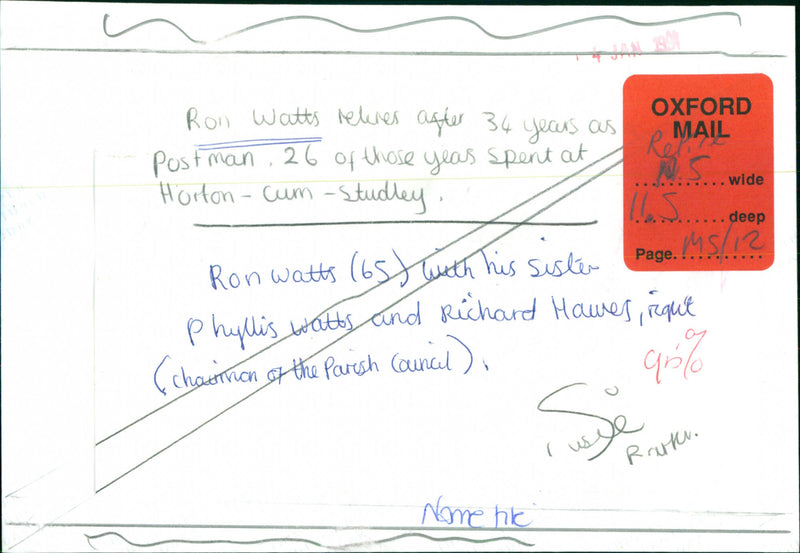 4 JAN
Ron Watts retires after 34 years as
Postman. 26 of those years spent at
Horton-cum-Studley.
OXFORD
MAIL
Retire
..........wide
11.5..........deep
Page..MS/12
Ron Watts (65) with his sister
Phyllis Watts and Richard Hawes, right
(chairman of the Parish Council).
90%
Name file